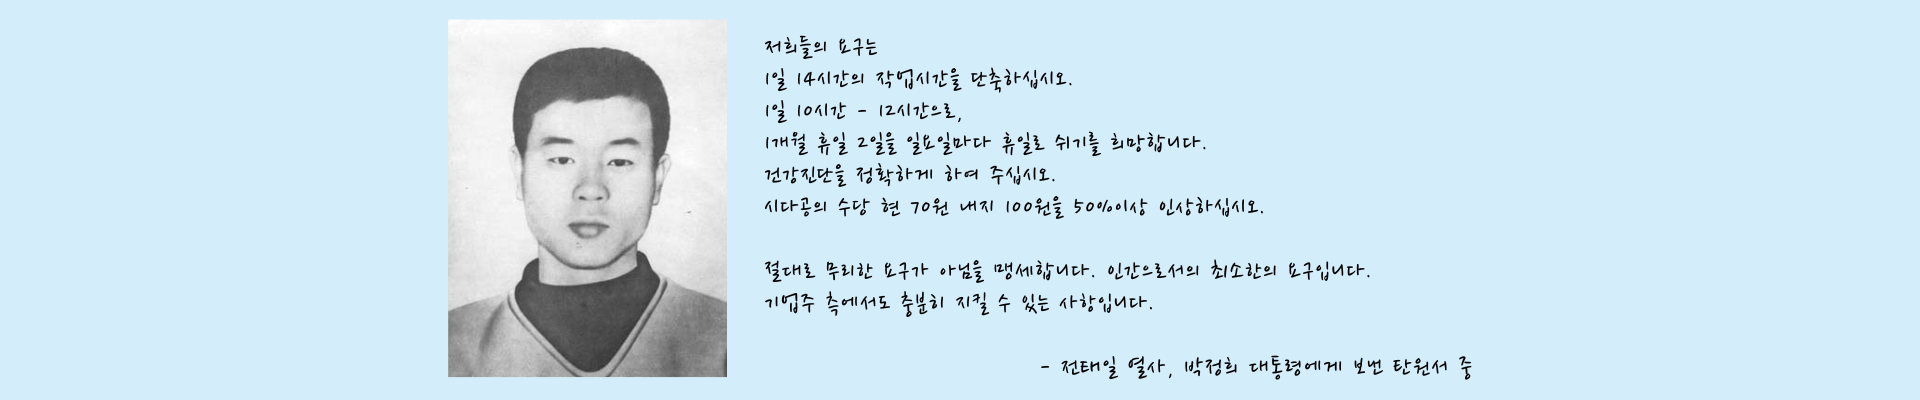 저희들의 요구는
1일 14시간의 작업시간을 단축하십시오.
1일 10시간 - 12시간으로,
1개월 휴일 2일을 일요일마다 휴일로 쉬기를 희망합니다.
건강진단을 정확하게 하여 주십시오.
시다공의 수당 현 70원 내지 100원을 50%이상 인상하십시오.
절대로 무리한 요구가 아님을 맹세합니다. 인간으로서의 최소한의 요구입니다.
기업주 측에서도 충분히 지킬 수 있는 사항입니다.
- 전태일 열사, 박정희 대통령에게 보낸 탄원서 중